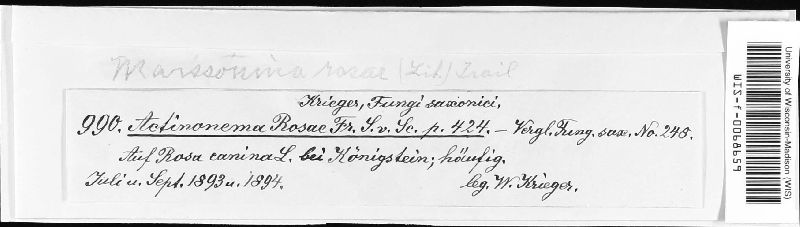 Marssonina rosae (Lib) Trail
Krieger, Fungi saxonici,
990. Actinonema Rosae Fr. S. v. Sc. p. 424. – Vergl. Fung. sax. No. 245.
Auf Rosa canina L. bei Königstein; häufig.
Juli u. Sept. 1893 u. 1894.
leg. W. Krieger.
University of Wisconsin-Madison (WIS)
WIS-f-0068659